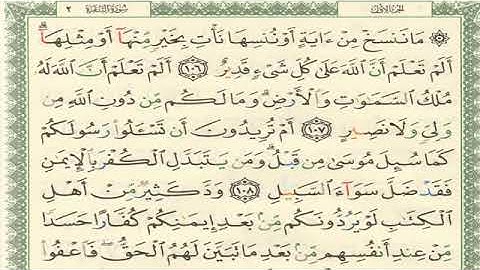 الجزء الأول سورة البقرة ٢
۞ مَا نَنسَخْ مِنْ ءَايَةٍ أَوْ نُنسِهَا نَأْتِ بِخَيْرٍ مِّنْهَآ أَوْ مِثْلِهَآ ۗ
أَلَمْ تَعْلَمْ أَنَّ ٱللَّهَ عَلَىٰ كُلِّ شَىْءٍ قَدِيرٌ ١٠٦ أَلَمْ تَعْلَمْ أَنَّ ٱللَّهَ لَهُۥ
مُلْكُ ٱلسَّمَٰوَٰتِ وَٱلْأَرْضِ ۗ وَمَا لَكُم مِّن دُونِ ٱللَّهِ مِن
وَلِىٍّ وَلَا نَصِيرٍ ١٠٧ أَمْ تُرِيدُونَ أَن تَسْـَٔلُوا۟ رَسُولَكُمْ
كَمَا سُئِلَ مُوسَىٰ مِن قَبْلُ ۗ وَمَن يَتَبَدَّلِ ٱلْكُفْرَ بِٱلْإِيمَٰنِ
فَقَدْ ضَلَّ سَوَآءَ ٱلسَّبِيلِ ١٠٨ وَدَّ كَثِيرٌ مِّنْ أَهْلِ
ٱلْكِتَٰبِ لَوْ يَرُدُّونَكُم مِّنۢ بَعْدِ إِيمَٰنِكُمْ كُفَّارًا حَسَدًا
مِّنْ عِندِ أَنفُسِهِم مِّنۢ بَعْدِ مَا تَبَيَّنَ لَهُمُ ٱلْحَقُّ ۖ فَٱعْفُوا۟